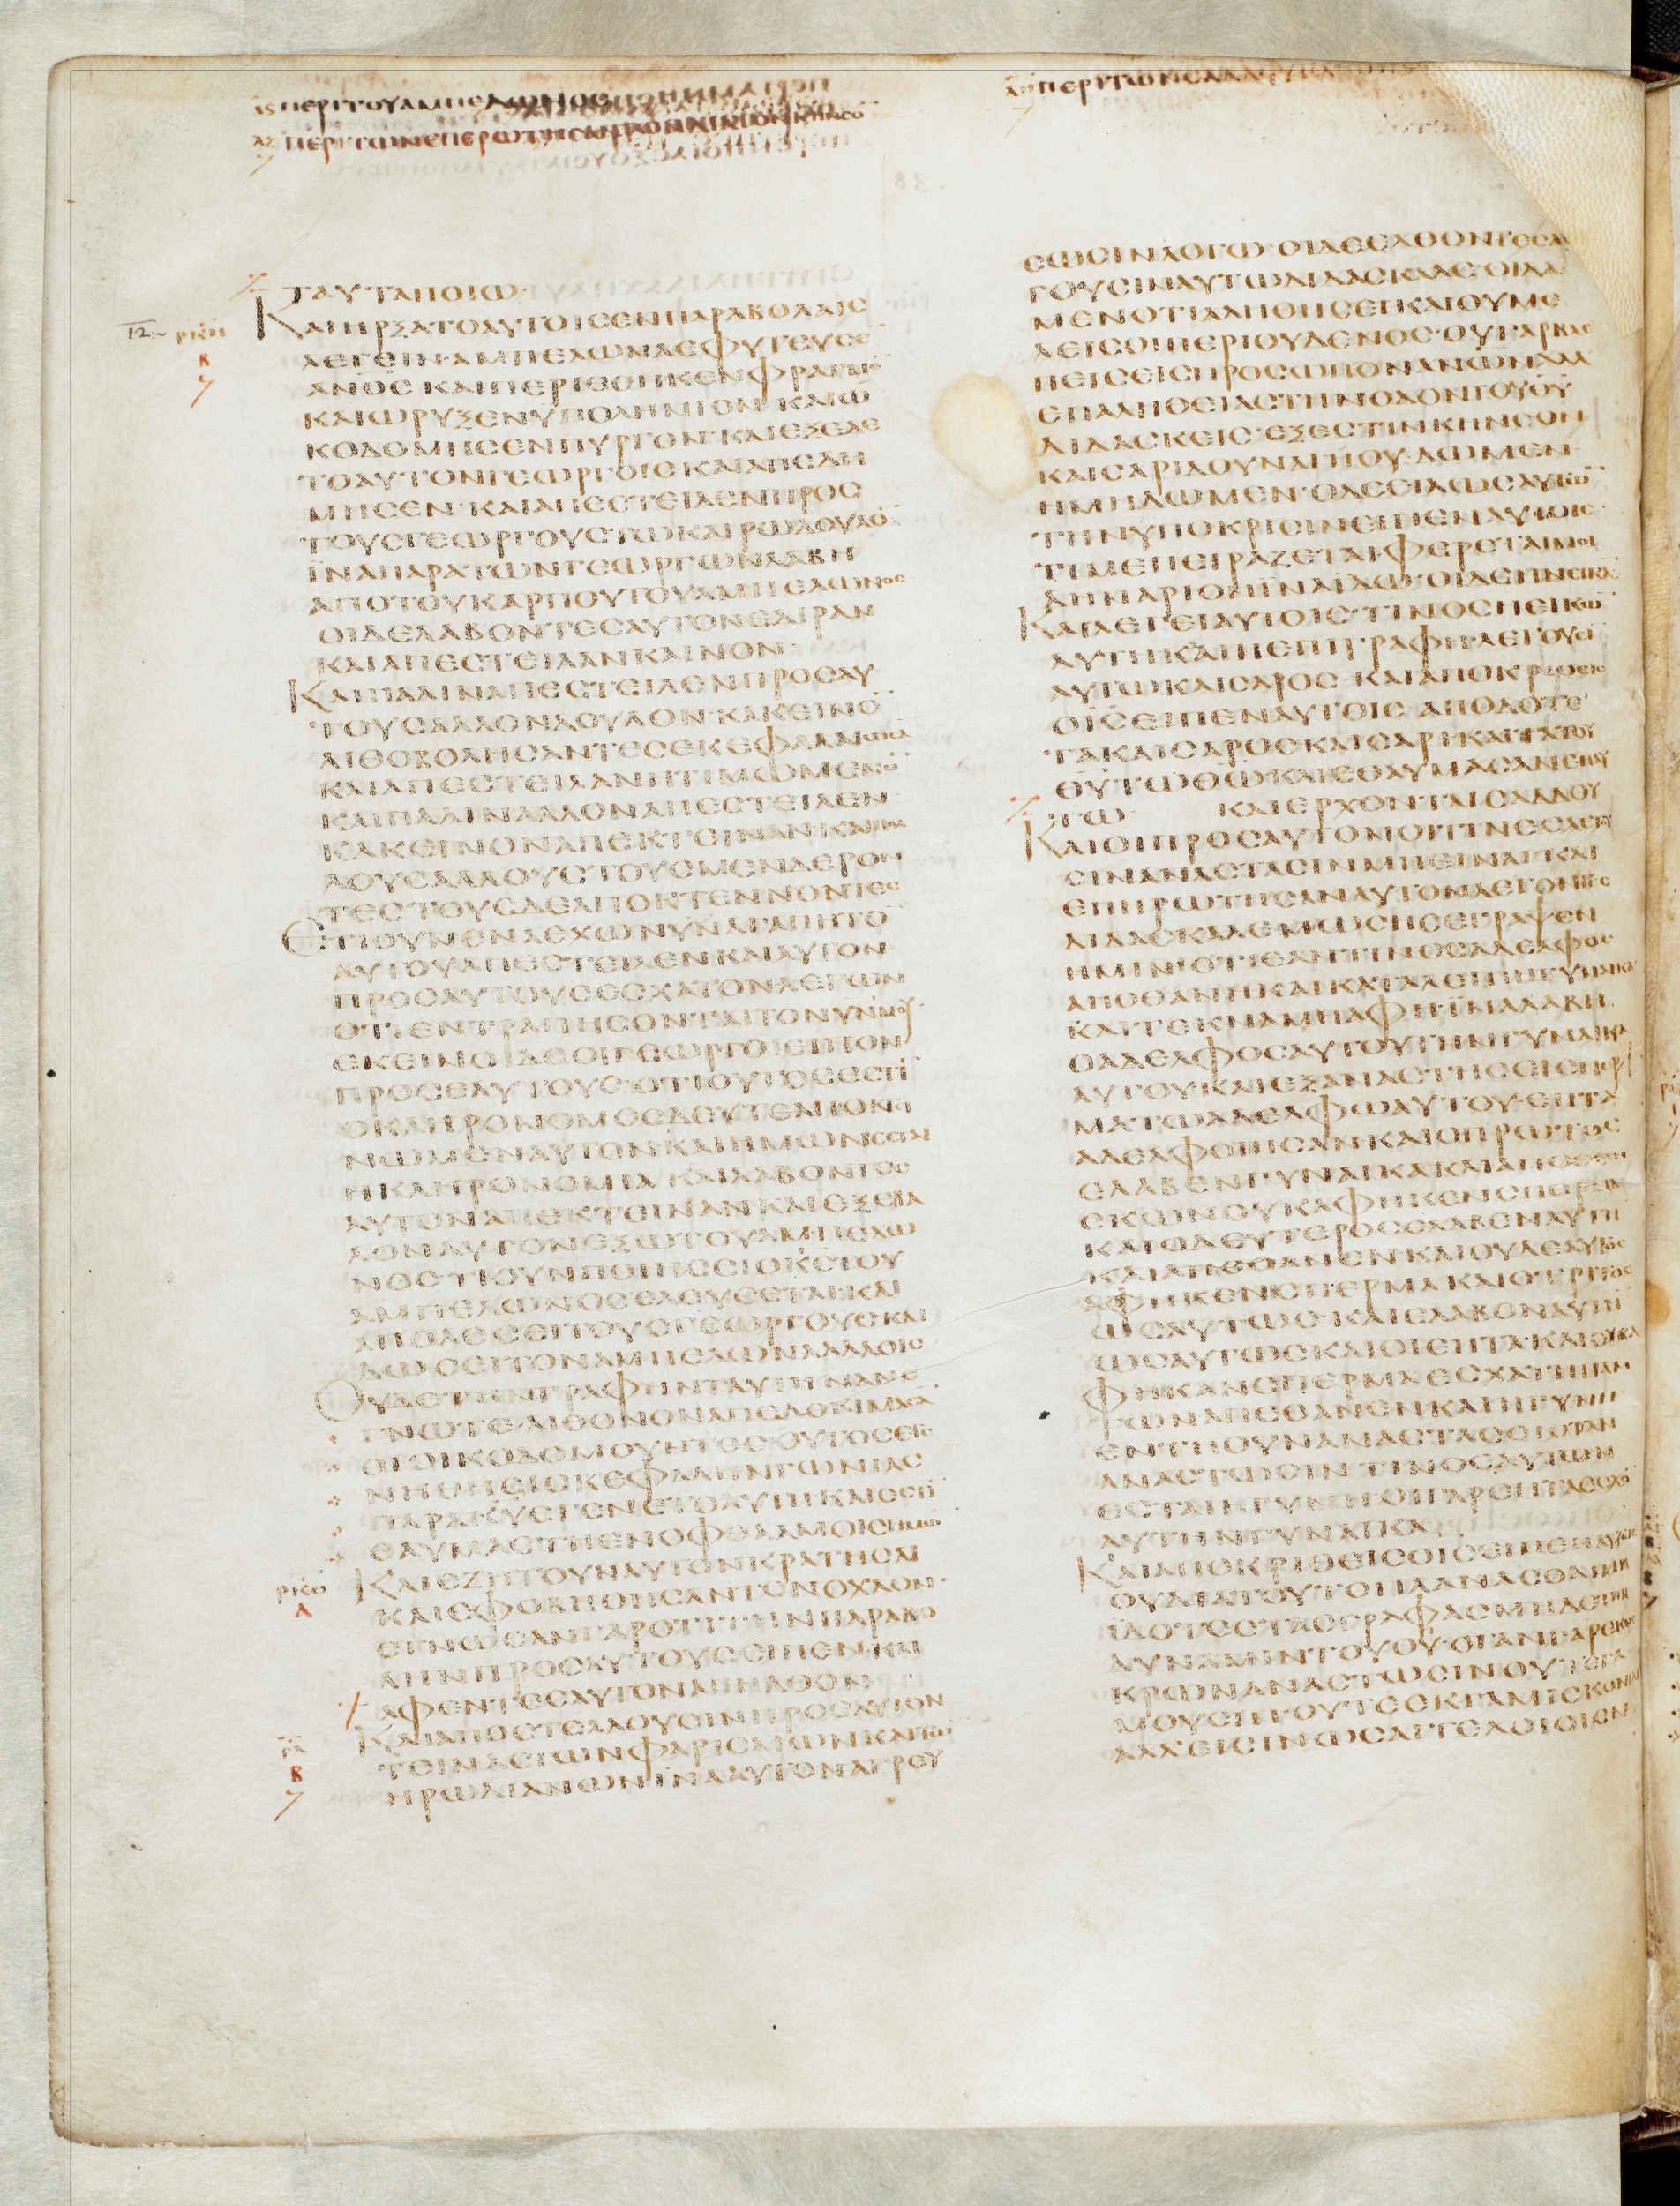 ΠΕΡΙΤΟΥΑΜΠΕΛΩΝΟΣ
ΠΕΡΙΤΩΝΕΠΕΡΩΤΗΣΑΝΤΩΝ
ΤΑΥΤΑΠΟΙΩ
ΚΑΙΗΡΞΑΤΟΑΥΤΟΙΣΕΝΠΑΡΑΒΟΛΑΙΣ
ΛΕΓΕΙΝ·ΑΜΠΕΛΩΝΑΕΦΥΤΕΥΣΕ
ΑΝΟΣΚΑΙΠΕΡΙΕΘΗΚΕΝΦΡΑΓΜΟ
ΚΑΙΩΡΥΞΕΝΥΠΟΛΗΝΙΟΝ·ΚΑΙΩ
ΚΟΔΟΜΗΣΕΝΠΥΡΓΟΝ·ΚΑΙΕΞΕΔΕ
ΤΟΑΥΤΟΝΓΕΩΡΓΟΙΣΚΑΙΑΠΕΔΗ
ΜΗΣΕΝ·ΚΑΙΑΠΕΣΤΕΙΛΕΝΠΡΟΣ
ΤΟΥΣΓΕΩΡΓΟΥΣΤΩΚΑΙΡΩΔΟΥΛΟ
ΪΝΑΠΑΡΑΤΩΝΓΕΩΡΓΩΝΛΑΒΗ
ΑΠΟΤΟΥΚΑΡΠΟΥΤΟΥΑΜΠΕΛΩΝΟΣ
ΟΙΔΕΛΑΒΟΝΤΕΣΑΥΤΟΝΕΔΙΡΑΝ
ΚΑΙΑΠΕΣΤΕΙΛΑΝΚΑΙΝΟΝ·
ΚΑΙΠΑΛΙΝΑΠΕΣΤΕΙΛΕΝΠΡΟΣΑΥ
ΤΟΥΣΑΛΛΟΝΔΟΥΛΟΝ·ΚΑΚΕΙΝΟ
ΛΙΘΟΒΟΛΗΣΑΝΤΕΣΕΚΕΦΑΛΑΙΩΣΑ
ΚΑΙΑΠΕΣΤΕΙΛΑΝΗΤΙΜΩΜΕΝΟ
ΚΑΙΠΑΛΙΝΑΛΛΟΝΑΠΕΣΤΕΙΛΕΝ
ΚΑΚΕΙΝΟΝΑΠΕΚΤΕΙΝΑΝ·ΚΑΙΠΟΛ
ΛΟΥΣΑΛΛΟΥΣΤΟΥΣΜΕΝΔΕΡΟΝ
ΤΕΣΤΟΥΣΔΕΑΠΟΚΤΕΝΝΟΝΤΕΣ
ΕΤΙΟΥΝΕΝΑΕΧΩΝΥΝΑΓΑΠΗΤΟ
ΑΥΤΟΥΑΠΕΣΤΕΙΛΕΝΚΑΙΑΥΤΟΝ
ΠΡΟΣΑΥΤΟΥΣΕΣΧΑΤΟΝΛΕΓΩΝ
ΟΤΙΕΝΤΡΑΠΗΣΟΝΤΑΙΤΟΝΥΝΜΟΥ
ΕΚΕΙΝΟΙΔΕΟΙΓΕΩΡΓΟΙΕΙΠΟΝ
ΠΡΟΣΕΑΥΤΟΥΣ·ΟΤΙΟΥΤΟΣΕΣΤΙ
ΟΚΛΗΡΟΝΟΜΟΣΔΕΥΤΕΑΠΟΚΤΙ
ΝΩΜΕΝΑΥΤΟΝ·ΚΑΙΗΜΩΝΕΣΤΑΙ
ΗΚΛΗΡΟΝΟΜΙΑ·ΚΑΙΛΑΒΟΝΤΕΣ
ΑΥΤΟΝΑΠΕΚΤΕΙΝΑΝ·ΚΑΙΕΞΕΒΑ
ΛΟΝΑΥΤΟΝΕΞΩΤΟΥΑΜΠΕΛΩ
ΝΟΣ·ΤΙΟΥΝΠΟΙΗΣΕΙΟΚΣΤΟΥ
ΑΜΠΕΛΩΝΟΣ·ΕΛΕΥΣΕΤΑΙΚΑΙ
ΑΠΟΛΕΣΕΙΤΟΥΣΓΕΩΡΓΟΥΣΚΑΙ
ΔΩΣΕΙΤΟΝΑΜΠΕΛΩΝΑΑΛΛΟΙΣ
ΟΥΔΕΤΗΝΓΡΑΦΗΝΤΑΥΤΗΝΑΝΕ
ΓΝΩΤΕ·ΛΙΘΟΝΟΝΑΠΕΔΟΚΙΜΑΣΑ
ΟΙΟΙΚΟΔΟΜΟΥΝΤΕΣ·ΟΥΤΟΣΕΓΕ
ΝΗΘΗΕΙΣΚΕΦΑΛΗΝΓΩΝΙΑΣ
ΠΑΡΑΚΥΕΓΕΝΕΤΟΑΥΤΗΚΑΙΕΣΤΙ
ΘΑΥΜΑΣΤΗΕΝΟΦΘΑΛΜΟΙΣΗΜΩ
ΚΑΙΕΖΗΤΟΥΝΑΥΤΟΝΚΡΑΤΗΣΑΙ
ΚΑΙΕΦΟΒΗΘΗΣΑΝΤΟΝΟΧΛΟΝ·
ΕΓΝΩΣΑΝΓΑΡΟΤΙΤΗΝΠΑΡΑΒΟ
ΛΗΝΠΡΟΣΑΥΤΟΥΣΕΙΠΕΝ·ΚΑΙ
ΑΦΕΝΤΕΣΑΥΤΟΝΑΠΗΛΘΟΝ
ΚΑΙΑΠΟΣΤΕΛΛΟΥΣΙΝΠΡΟΣΑΥΤΟΝ
ΤΕΙΝΑΣΤΩΝΦΑΡΙΣΑΙΩΝΚΑΙΤΩ
ΗΡΩΔΙΑΝΩΝΪΝΑΑΥΤΟΝΑΓΡΕΥ
ΠΕΡΙΤΩΝΣΑΔΔ
ΣΩΣΙΝΛΟΓΩ·ΟΙΔΕΕΛΘΟΝΤΕΣΛΕ
ΓΟΥΣΙΝΑΥΤΩΔΙΔΑΣΚΑΛΕ·ΟΙΔΑ
ΜΕΝΟΤΙΑΛΗΘΗΣΕΙΚΑΙΟΥΜΕ
ΛΕΙΣΟΙΠΕΡΙΟΥΔΕΝΟΣ·ΟΥΓΑΡΒΛΕ
ΠΕΙΣΕΙΣΠΡΟΣΩΠΟΝΑΝΩΝΑΛΛ
ΕΠΑΛΗΘΕΙΑΣΤΗΝΟΔΟΝΤΟΥΘΥ
ΔΙΔΑΣΚΕΙΣ·ΕΞΕΣΤΙΝΚΗΝΣΟΝ
ΚΑΙΣΑΡΙΔΟΥΝΑΙΗΟΥ·ΔΩΜΕΝ
ΗΜΗΔΩΜΕΝ·ΟΔΕΕΙΔΩΣΑΥΤΩ
ΤΗΝΥΠΟΚΡΙΣΙΝΕΙΠΕΝΑΥΤΟΙΣ·
ΤΙΜΕΠΕΙΡΑΖΕΤΑΙ·ΦΕΡΕΤΑΙΜΟΙ
ΔΗΝΑΡΙΟΝΪΝΑΪΔΩ·ΟΙΔΕΗΝΕΓΚΑ
ΚΑΙΛΕΓΕΙΑΥΤΟΙΣ·ΤΙΝΟΣΗΕΙΚΩ
ΑΥΤΗΚΑΙΗΕΠΙΓΡΑΦΗ·ΛΕΓΟΥΣΙ
ΑΥΤΩΚΑΙΣΑΡΟΣ·ΚΑΙΑΠΟΚΡΙΘΕΙΣ
ΟΙΣΕΙΠΕΝΑΥΤΟΙΣ·ΑΠΟΔΟΤΕ
ΤΑΚΑΙΣΑΡΟΣΚΑΙΣΑΡΗ·ΚΑΙΤΑΤΟΥ
ΘΥΤΩΘΩ·ΚΑΙΕΘΑΥΜΑΣΑΝΕΠΑΥ
ΤΩ ΚΑΙΕΡΧΟΝΤΑΙΣΑΔΔΟΥ
ΚΑΙΟΙΠΡΟΣΑΥΤΟΝΟΙΤΙΝΕΣΛΕΓΟΥ
ΣΙΝΑΝΑΣΤΑΣΙΝΜΗΕΙΝΑΙ·ΚΑΙ
ΕΠΗΡΩΤΗΣΑΝΑΥΤΟΝΛΕΓΟΝΤΕΣ
ΔΙΔΑΣΚΑΛΕΜΩΣΗΣΕΓΡΑΨΕΝ
ΗΜΙΝΟΤΙΕΑΝΤΙΝΟΣΑΔΕΛΦΟΣ
ΑΠΟΘΑΝΗΚΑΙΚΑΤΑΛΕΙΠΗΓΥΝΑΙΚΑ
ΚΑΙΤΕΚΝΑΜΗΑΦΗ·ΪΝΑΛΑΒΗ
ΟΑΔΕΛΦΟΣΑΥΤΟΥΤΗΝΓΥΝΑΙΚΑ
ΑΥΤΟΥ·ΚΑΙΕΞΑΝΑΣΤΗΣΕΙΣΠΕΡ
ΜΑΤΩΑΔΕΛΦΩΑΥΤΟΥ·ΕΠΤΑ
ΑΔΕΛΦΟΙΗΣΑΝΚΑΙΟΠΡΩΤΟΣ
ΕΛΑΒΕΝΓΥΝΑΙΚΑΚΑΙΑΠΟΘΝΗ
ΣΚΩΝΟΥΚΑΦΗΚΕΝΣΠΕΡΜΑ
ΚΑΙΟΔΕΥΤΕΡΟΣΕΛΑΒΕΝΑΥΤΗ
ΚΑΙΑΠΕΘΑΝΕΝ·ΚΑΙΟΥΔΕΑΥΤΟΣ
ΑΦΗΚΕΝΣΠΕΡΜΑΚΑΙΟΤΡΙΤΟΣ
ΩΣΑΥΤΩΣ·ΚΑΙΕΛΑΒΟΝΑΥΤΗ
ΩΣΑΥΤΩΣΚΑΙΟΙΕΠΤΑ·ΚΑΙΟΥΚΑ
ΦΗΚΑΝΣΠΕΡΜΑ·ΕΣΧΑΤΗΠΑΝ
ΤΩΝΑΠΕΘΑΝΕΝΚΑΙΗΓΥΝΗ
ΕΝΤΗΟΥΝΑΝΑΣΤΑΣΕΙΟΤΑΝ
ΑΝΑΣΤΩΣΙΝ·ΤΙΝΟΣΑΥΤΩΝ
ΕΣΤΑΙΗΓΥΝΗ·ΟΙΓΑΡΕΠΤΑΕΣΧΟ
ΑΥΤΗΝΓΥΝΑΙΚΑ
ΚΑΙΑΠΟΚΡΙΘΕΙΣΟΙΣΕΙΠΕΝΑΥΤΟΙΣ
ΟΥΔΙΑΤΟΥΤΟΠΛΑΝΑΣΘΑΙ
ΪΔΟΤΕΣΤΑΣΓΡΑΦΑΣΜΗΔΕΤΗΝ
ΔΥΝΑΜΙΝΤΟΥΘΥ·ΟΤΑΝΓΑΡΕΚΝΕ
ΚΡΩΝΑΝΑΣΤΩΣΙΝΟΥΤΕΓΑ
ΜΟΥΣΙΝ·ΟΥΤΕΕΚΓΑΜΙΣΚΟΝΤΑΙ
ΑΛΛΕΙΣΙΝΩΣΑΓΓΕΛΟΙΟΙΕΝ